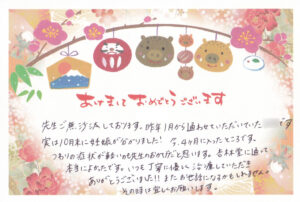 あけまして おめでとう ございます
先生ご無沙汰しております。昨年1月から通わせていただいていた です
実は10月末に妊娠が分かりました! 今、4ヶ月に入ったところです。
つわりの症状が軽いのも先生のおかげだと思います。杏林堂に通って、
本当によかったです。いつも丁寧に優しく治療していただき
ありがとうございました!! またお世話になるかもしれません。
その時は宜しくお願いします。